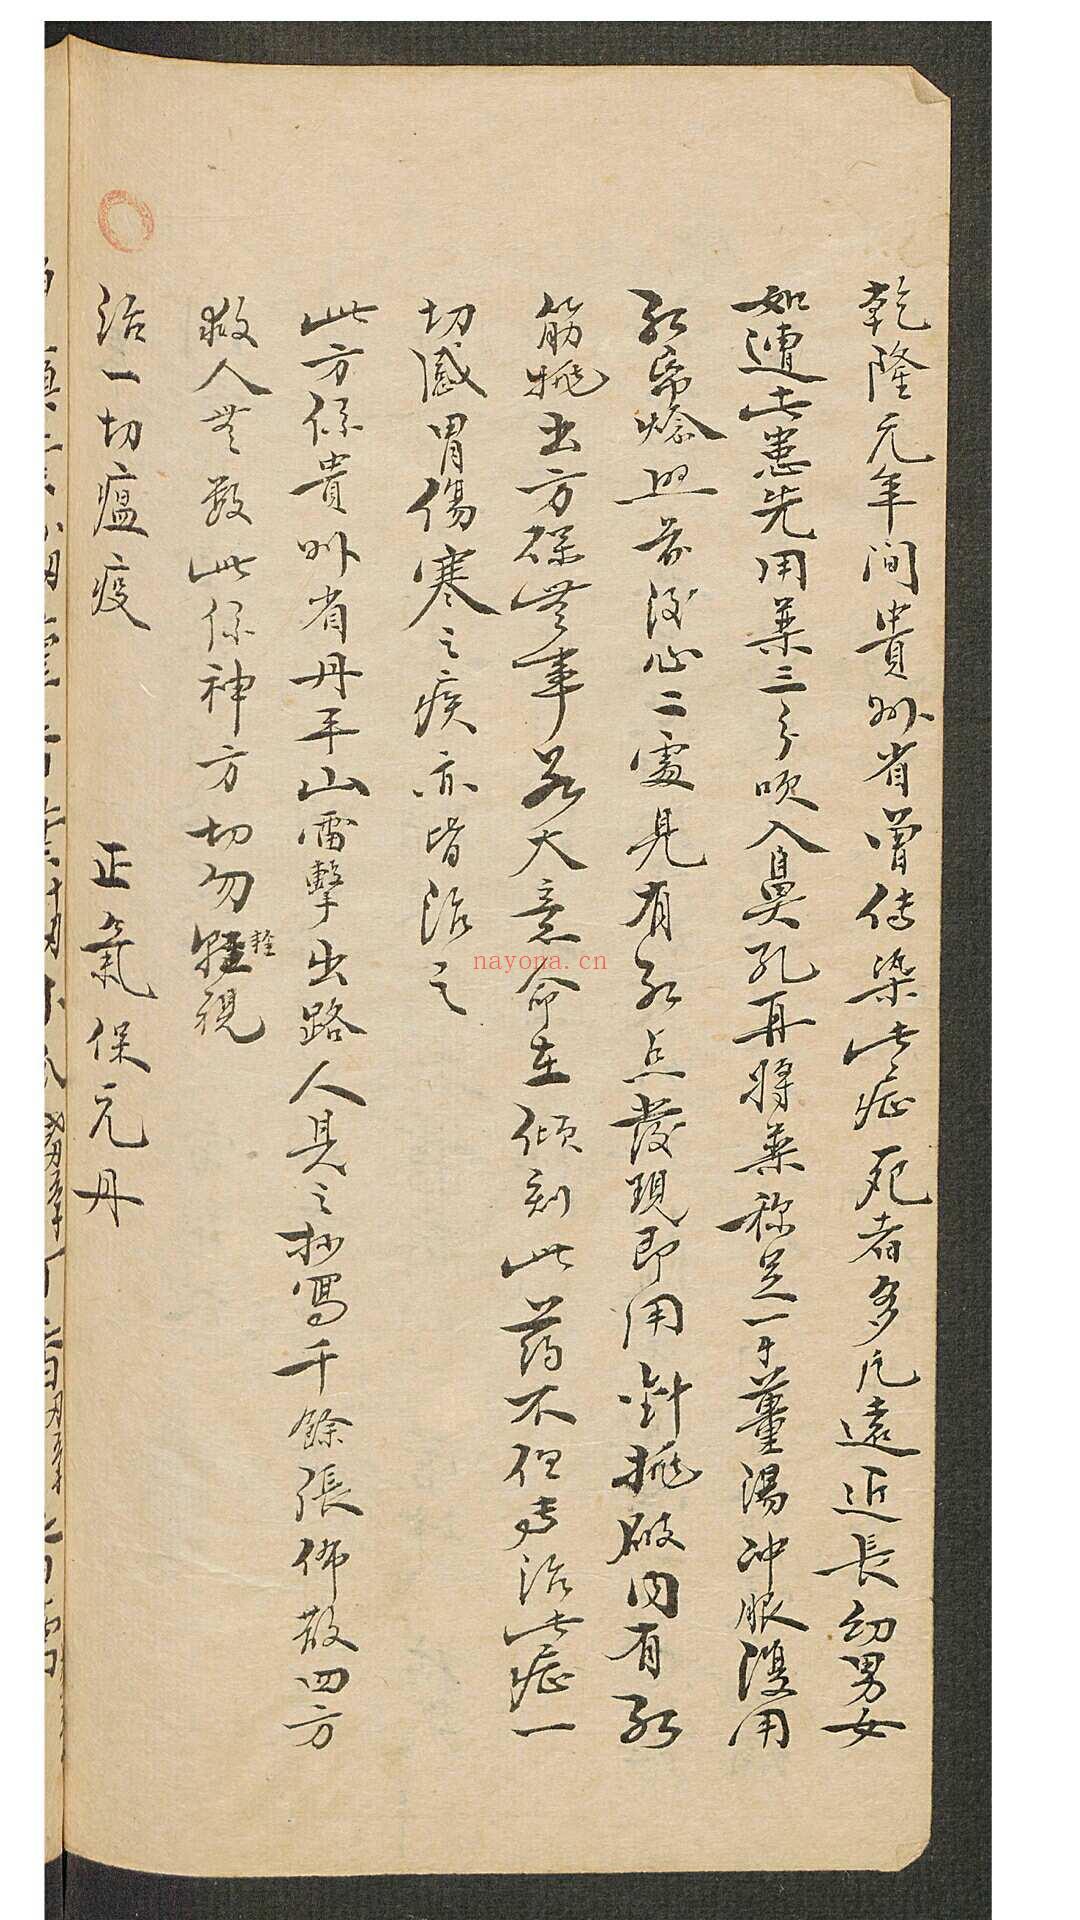 乾隆元年间貴州省曽傳染此症死者多凡遠近長幼男女
如遭此患先用藥三分吹入鼻孔再将藥称足一于薑湯冲服復用
紅帋燃照前後心二處見有紅点發現即用針挑破內有紅
筋挑出方保無事若大意命在傾刻此药不但專治此症一
切感冒傷寒之疾亦皆治之
此方係貴州省丹平山雷擊出路人見之抄寫千餘張佈散四方
救人無数此係神方切勿輕視
治一切瘟疫 正氣保元丹
nayona.cn